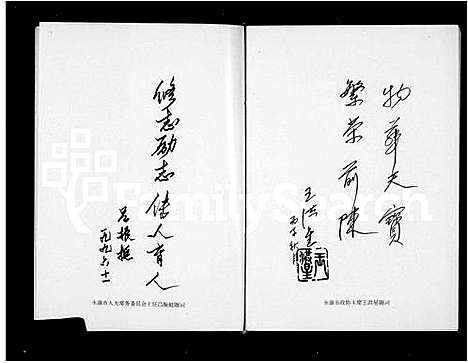 修志励志 传人育人
吕振挺
一九九六·十一
永康市人大常务委员会主任吕振挺题词
物華天寶
繁荣前陳
丙子秋月
永康市政协主席王洪星题词
FamilySearch